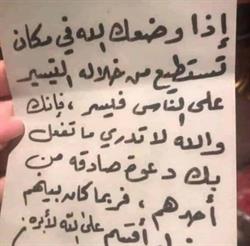 إذا وضعك الله في مكان
تستطيع من خلاله التيسير
على الناس فيسر ، فإنك
والله لا تدري ما تفعل
بك دعوة صادقة من
أحدهم ، فربما كان بينهم
أقسم على الله لأبره